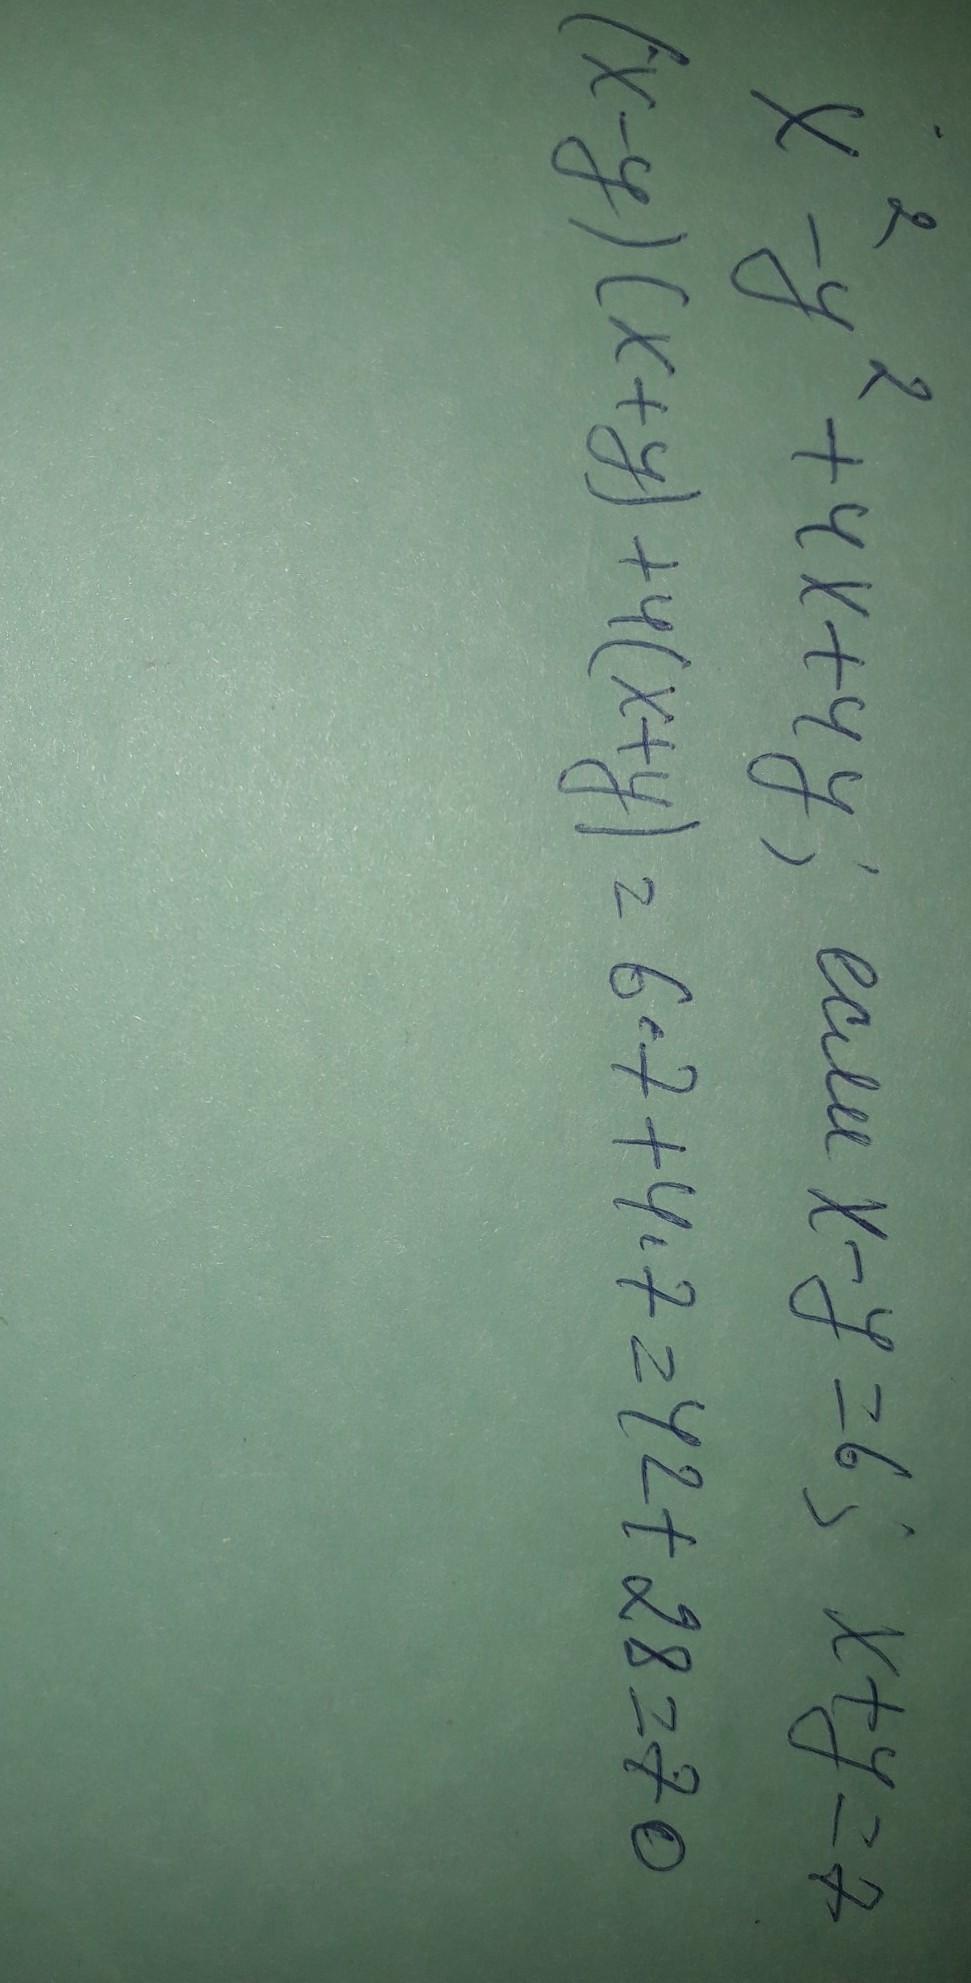 x² - y² + 4x + 4y, если x - y = 6, x + y = 7
(x - y)(x + y) + 4(x + y) = 6·7 + 4·7 = 42 + 28 = 70